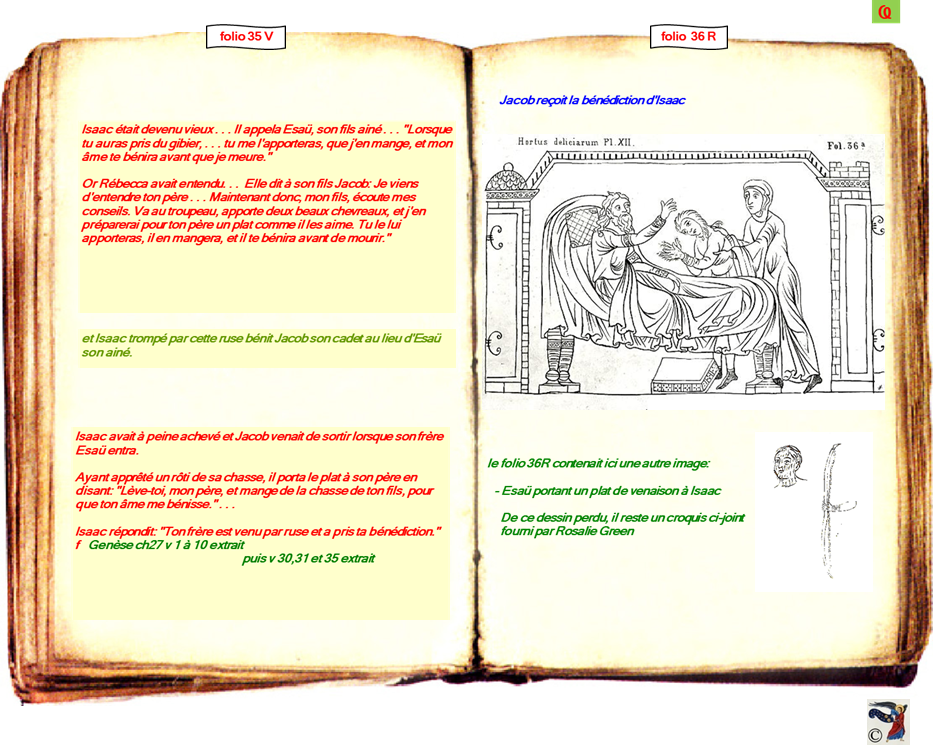 folio 35 V
Isaac était devenu vieux . . . Il appela Esaü, son fils ainé . . . "Lorsque
tu auras pris du gibier, . . . tu me l'apporteras, que j'en mange, et mon
âme te bénira avant que je meure."
Or Rébecca avait entendu. . . Elle dit à son fils Jacob: Je viens
d'entendre ton père . . . Maintenant donc, mon fils, écoute mes
conseils. Va au troupeau, apporte deux beaux chevreaux, et j'en
préparerai pour ton père un plat comme il les aime. Tu le lui
apporteras, il en mangera, et il te bénira avant de mourir."
et Isaac trompé par cette ruse bénit Jacob son cadet au lieu d'Esaü
son ainé.
Isaac avait à peine achevé et Jacob venait de sortir lorsque son frère
Esaü entra.
Ayant apprêté un rôti de sa chasse, il porta le plat à son père en
disant: "Lève-toi, mon père, et mange de la chasse de ton fils, pour
que ton âme me bénisse." . . .
Isaac répondit: "Ton frère est venu par ruse et a pris ta bénédiction."
f Genèse ch27 v 1 à 10 extrait
puis v 30,31 et 35 extrait
folio 36 R
Jacob reçoit la bénédiction d'Isaac
Hortus deliciarum Pl. XII.
Fol. 36ª
le folio 36R contenait ici une autre image:
- Esaü portant un plat de venaison à Isaac
De ce dessin perdu, il reste un croquis ci-joint
fourni par Rosalie Green
©